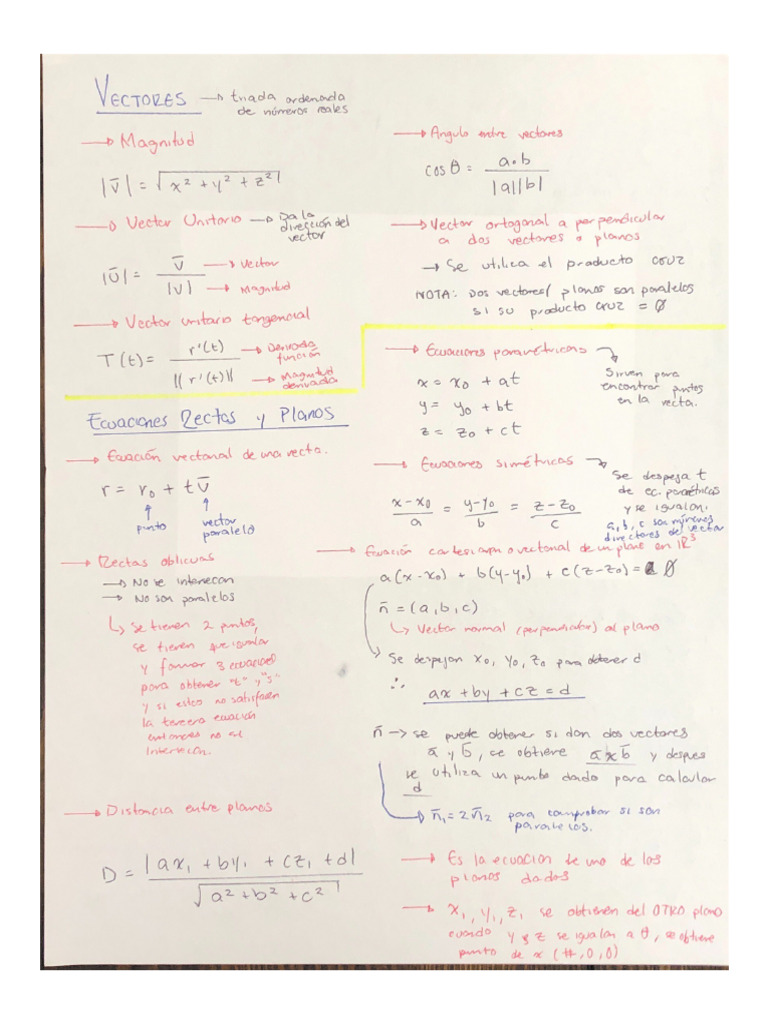 VECTORES → triada ordenada
de números reales
→ Magnitud
|v̄| = √(x² + y² + z²)
→ Vector Unitario → Da la
dirección del
vector
|Ū| = v̄ / |v| → Vector
→ Magnitud
→ Vector unitario tangencial
T(t) = r'(t) / ||r'(t)|| → Derivada
función
→ Magnitud
derivada
→ Angulo entre vectores
cos θ = a∘b / |a||b|
→ Vector ortogonal a perpendicular
a dos vectores o planos
→ Se utiliza el producto cruz
NOTA: Dos vectores/ planos son paralelos
si su producto cruz = 0
Ecuaciones Rectas y Planos
→ Ecuación vectorial de una recta.
r = r₀ + t v̄
punto
vector
paralelo
→ Rectas oblicuas
→ No se intersecan
→ No son paralelos
↳ Se tienen 2 puntos,
se tienen que igualar
y formar 3 ecuaciones
para obtener "t" y "s"
y si estos no satisfacen
la tercera ecuación
entonces no es
intersección.
→ Distancia entre planos
D = |ax₁ + by₁ + cz₁ + d| / √(a² + b² + c²)
→ Ecuaciones paramétricas
Sirven para
encontrar puntos
en la recta.
x = x₀ + at
y = y₀ + bt
z = z₀ + ct
→ Ecuaciones simétricas
Se despeja t
de ec. paramétricas
y se igualan.
a, b, c son números
directores del vector
x-x₀ / a = y-y₀ / b = z-z₀ / c
→ Ecuación cartesiana o vectorial de un plano en ℝ³
a(x-x₀) + b(y-y₀) + c(z-z₀) = 0
n̄ = (a, b, c)
↳ Vector normal (perpendicular) al plano
Se despejan x₀, y₀, z₀ para obtener d
∴ ax + by + cz = d
n̄ → se puede obtener si dan dos vectores
ā y b̄, se obtiene a x b̄ y despues
se utiliza un punto dado para calcular
d
→ n̄₁ = 2n̄₂ para comprobar si son
paralelos.
→ Es la ecuacion de uno de los
planos dados
→ x₁, y₁, z₁ se obtienen del OTRO plano
cuando y & z se igualan a 0, se obtiene
punto de x (#, 0, 0)